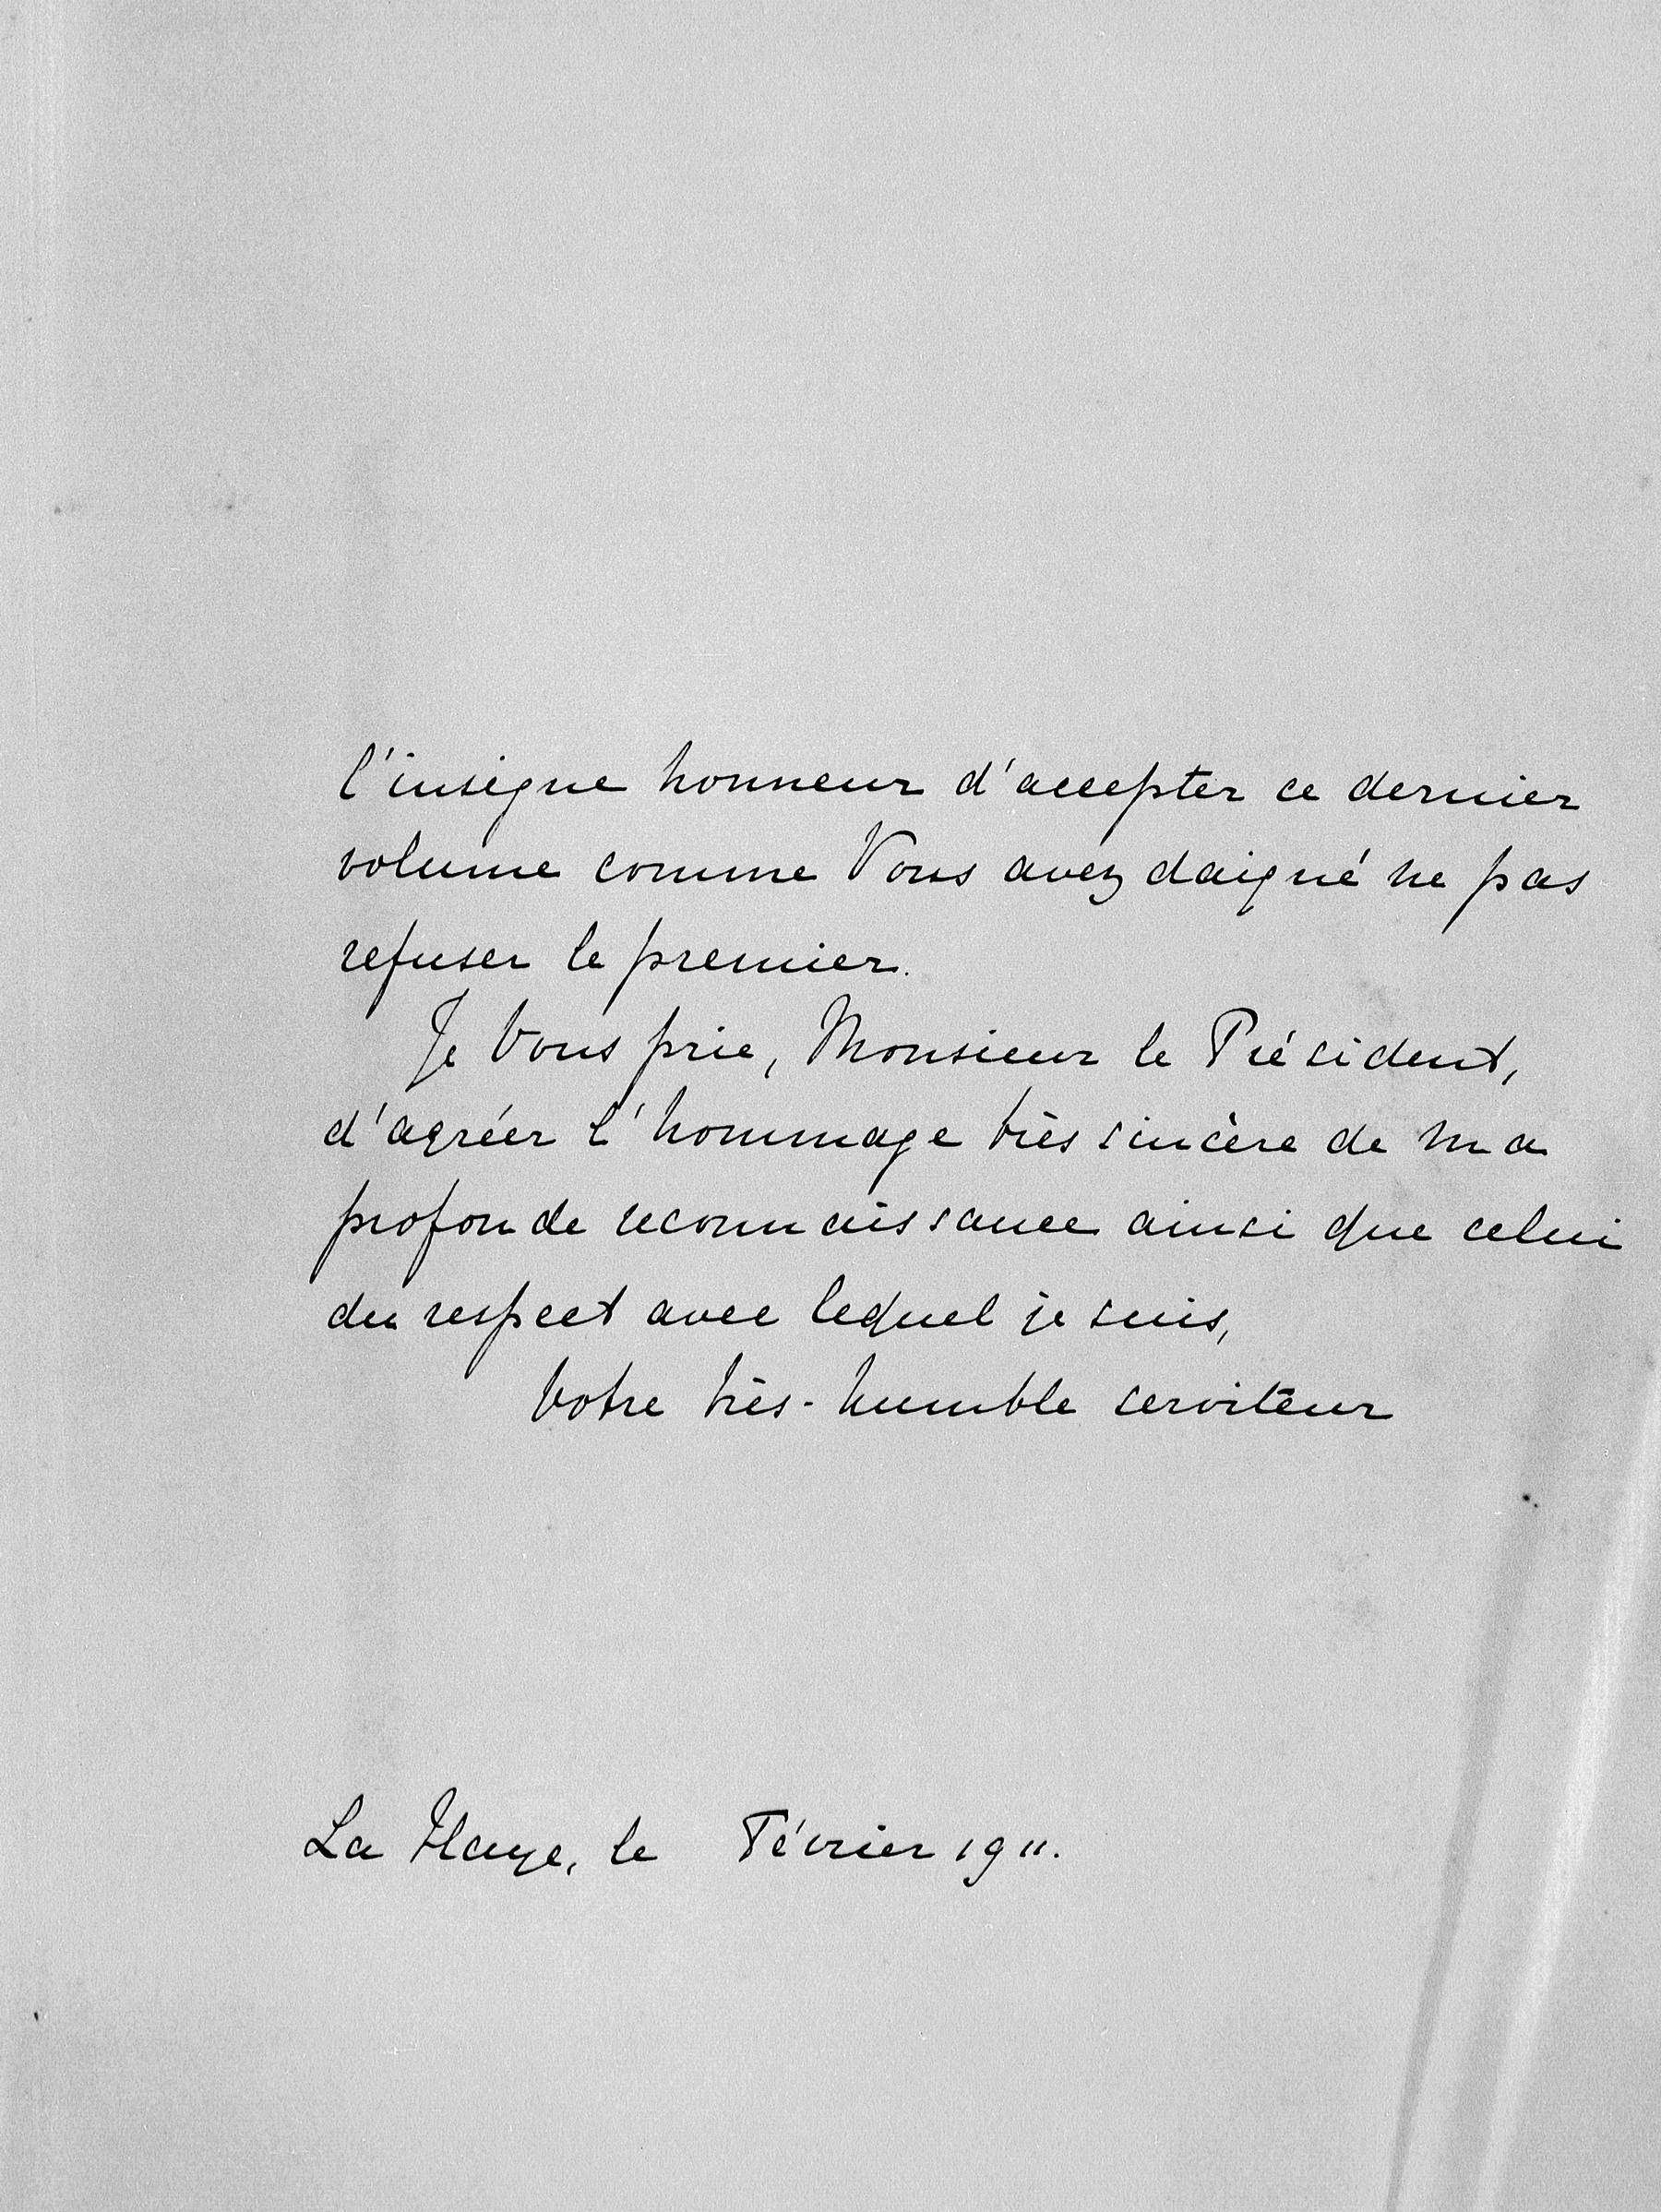 l'insigne honneur d'accepter ce dernier
volume comme Vous avez daigné ne pas
refuser le premier.
Je Vous prie, Monsieur le Président,
d'agréer l'hommage très sincère de ma
profonde reconnaissance ainsi que celui
du respect avec lequel je suis,
Votre très-humble serviteur
La Haye, le Février 1911.